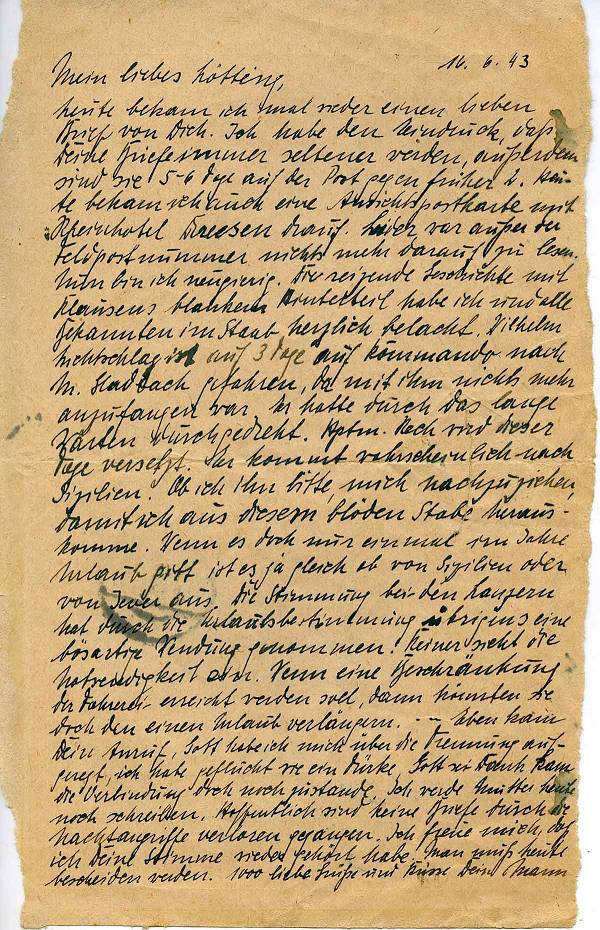 16. 6. 43
Mein liebes
heute bekam ich mal wieder einen lieben
Brief von Dich. Ich habe den Eindruck, daß
Deine Briefe immer seltener werden, außerdem
sind sie 5-6 Tage auf der Post gegen früher 2. Heu-
te bekam ich auch eine Ansichtspostkarte mit
Rheinhotel Dreesen drauf. Leider war außer der
Feldpostnummer nichts mehr darauf zu lesen.
Nun bin ich neugierig. Die reizende Geschichte mit
Klausens blankem Hinterteil habe ich und alle
Bekannten im Stab herzlich belacht. Wilhelm
ist auf 3 Tage auf Kommando nach
M. Gladbach gefahren, da mit ihm nichts mehr
anzufangen war. Er hatte durch das lange
Warten durchgedreht. Hptm. wird dieser
Tage versetzt. Er kommt wahrscheinlich nach
Sizilien. Ob ich ihn bitte, mich nachzuziehen,
damit ich aus diesem blöden Stabe heraus-
komme. Wenn es doch nur einmal im Jahre
Urlaub gibt ist es ja gleich ob von Sizilien oder
von Jever aus. Die Stimmung bei den
hat durch die Urlaubsbestimmung übrigens eine
bösartige Wendung genommen. Keiner sieht die
Notwendigkeit ein. Wenn eine Beschränkung
der Fahrerei erreicht werden soll, dann könnten sie
doch den einen Urlaub verlängern. — Eben kam
Dein Anruf, Gott habe ich mich über die Trennung auf-
geregt, ich habe geflucht wie ein Türke. Gott sei Dank kam
die Verbindung doch noch zustande. Ich werde Mutter heute
noch schreiben. Hoffentlich sind keine Briefe durch die
Nachtangriffe verloren gegangen. Ich freue mich, daß
ich Deine Stimme wieder gehört habe. Man muß heute
bescheiden werden. 1000 liebe Grüße und Küsse Dein Mann